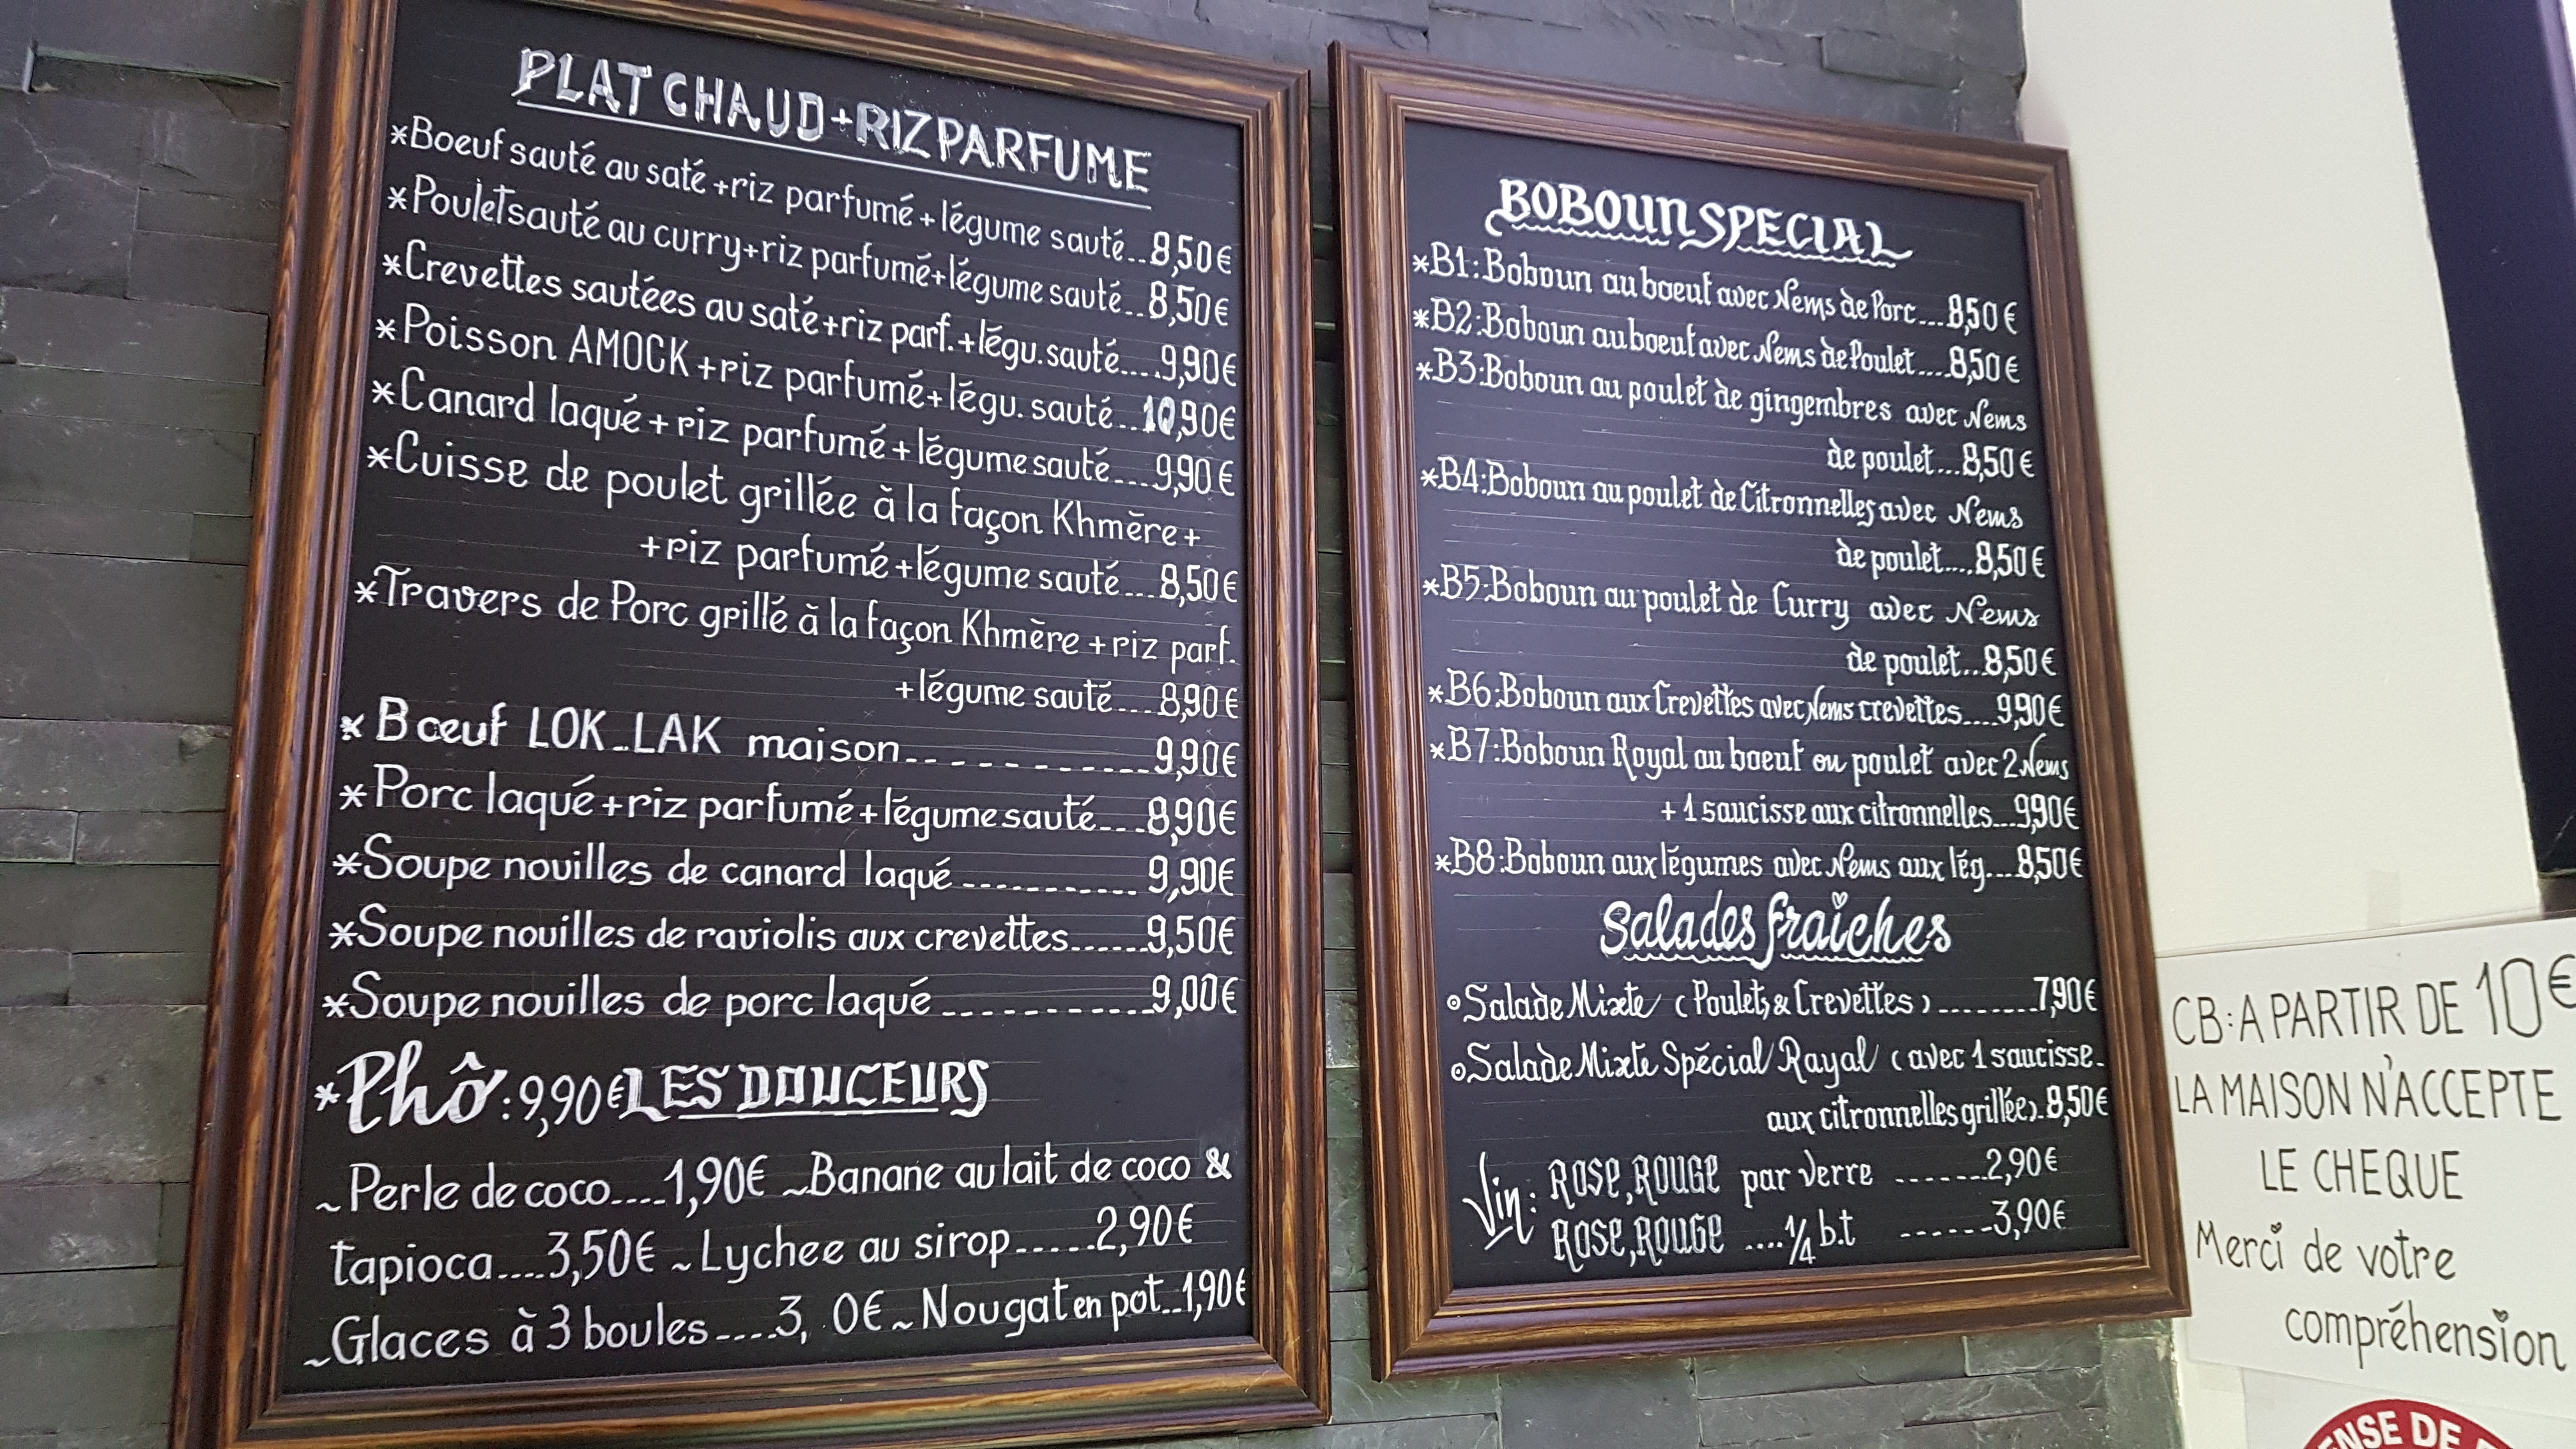 PLAT CHAUD+RIZ PARFUME
*Boeuf sauté au saté+riz parfumé+légume sauté...8,50€
*Poulet sauté au curry+riz parfumé+légume sauté...8,50€
*Crevettes sautées au saté+riz parf.+légu.sauté....9,90€
*Poisson AMOCK+riz parfumé+légu. sauté...10,90€
*Canard laqué+riz parfumé+légume sauté....9,90€
*Cuisse de poulet grillée à la façon Khmère+
+riz parfumé+légume sauté...8,50€
*Travers de Porc grillé à la façon Khmère+riz parf.
+légume sauté....8,90€
*Bœuf LOK..LAK maison------------9,90€
*Porc laqué+riz parfumé+légume sauté----8,90€
*Soupe nouilles de canard laqué------------9,90€
*Soupe nouilles de raviolis aux crevettes......9,50€
*Soupe nouilles de porc laqué------------9,00€
*Phô:9,90€ LES DOUCEURS
~Perle de coco....1,90€ ~Banane au lait de coco &
tapioca....3,50€ ~Lychee au sirop.....2,90€
~Glaces à 3 boules----3, 0€~Nougat en pot..1,90€
BOBOUN SPECIAL
*B1:Boboun au boeuf avec Nems de Porc...8,50€
*B2:Boboun au boeuf avec Nems de Poulet....8,50€
*B3:Boboun au poulet de gingembres avec Nems
de poulet...8,50€
*B4:Boboun au poulet de Citronnelles avec Nems
de poulet....8,50€
*B5:Boboun au poulet de Curry avec Nems
de poulet...8,50€
*B6:Boboun aux Crevettes avec Nems crevettes....9,90€
*B7:Boboun Royal au boeuf ou poulet avec 2 Nems
+1 saucisse aux citronnelles...9,90€
*B8:Boboun aux légumes avec Nems aux lég....8,50€
Salades fraîches
⊙Salade Mixte (Poulets & Crevettes)..........7,90€
⊙Salade Mixte Spécial Rayal (avec 1 saucisse.
aux citronnelles grillée).8,50€
Vin: ROSE,ROUGE par verre -------2,90€
ROSE,ROUGE ....1/4 b.t -------3,90€
CB:A PARTIR DE 10€
LA MAISON N'ACCEPTE
LE CHEQUE
Merci de votre
compréhension
NSE DE